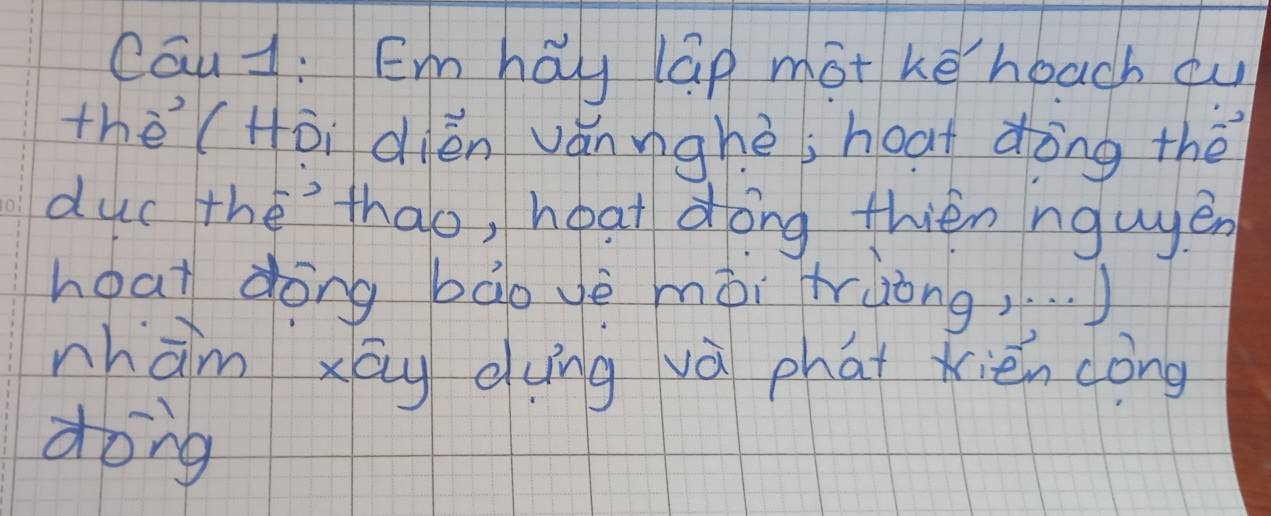 Câu 1: Em hãy lập một kế hoạch cụ
thể (Hội diễn văn nghệ; hoạt động thể
dục thể thao, hoạt động thiện nguyện
hoạt động bảo vệ môi trường,...)
nhằm xây dựng và phát triển cộng
đồng